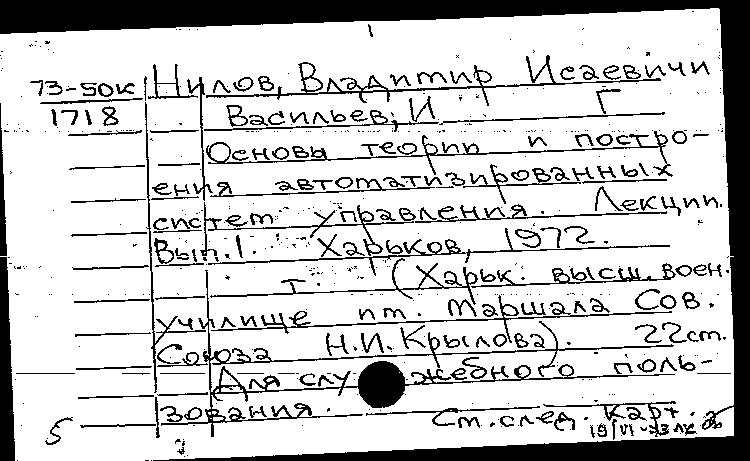 73-50к Нилов, Владимир Исаевич и
1718 Васильев, И Г
Основы теории и постро-
ения автоматизированных
систем управления. Лекции.
Вып. 1. Харьков, 1972.
т. (Харьк. высш. воен.
училище им. Маршала Сов.
Союза Н.И. Крылова). 22 ст.
Для служебного поль-
зования.
5 См. след. карт.
19/VI-73